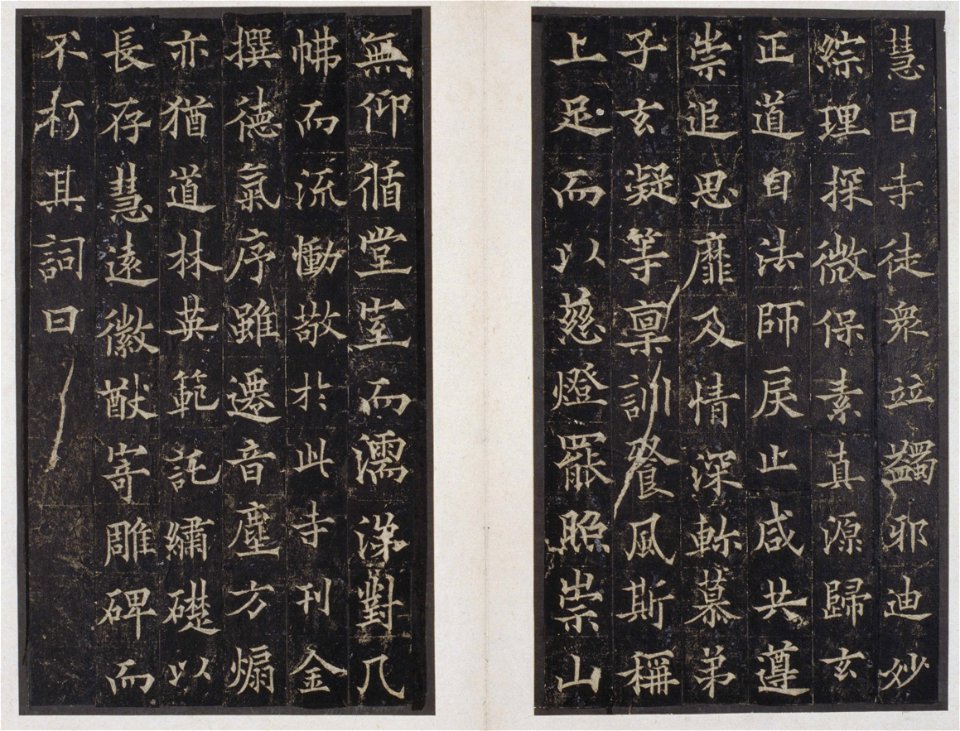 慧日寺徒衆竝蠲邪迪妙
綜理探微保素真源歸玄
正道自法師戾止咸共遵
崇追思靡及情深軫慕弟
子玄凝等稟訓餐風斯稱
上足而以慈燈罷照崇山
無仰循堂室而濡涕對几
而流慟敬於此寺刊金
撰德氣序雖遷音塵方煽
亦猶道林英範託繡礎以
長存慧遠徽猷寄雕碑而
不朽其詞曰